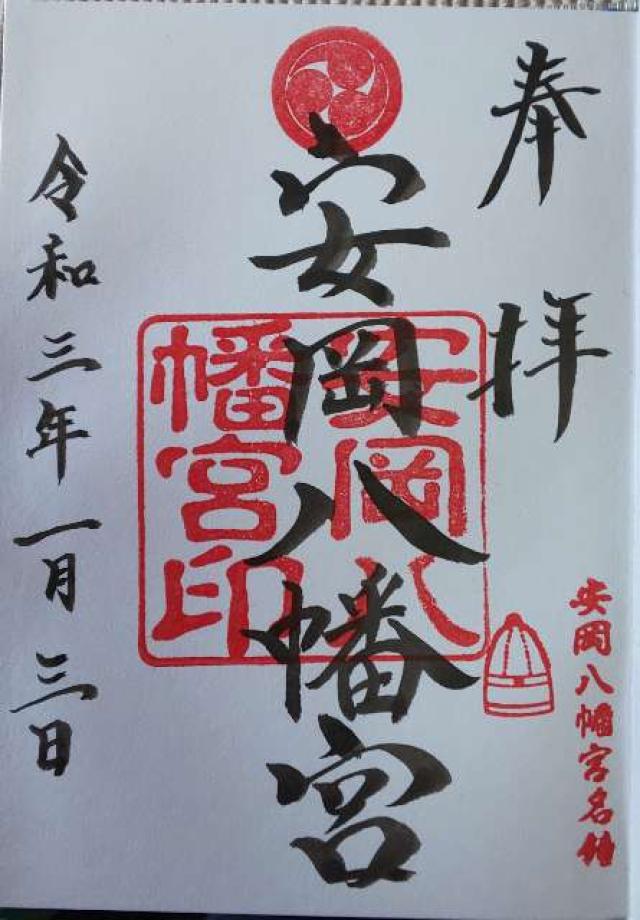 奉拝
安岡八幡宮
安岡八幡宮印
令和三年一月三日
安岡八幡宮名鐘